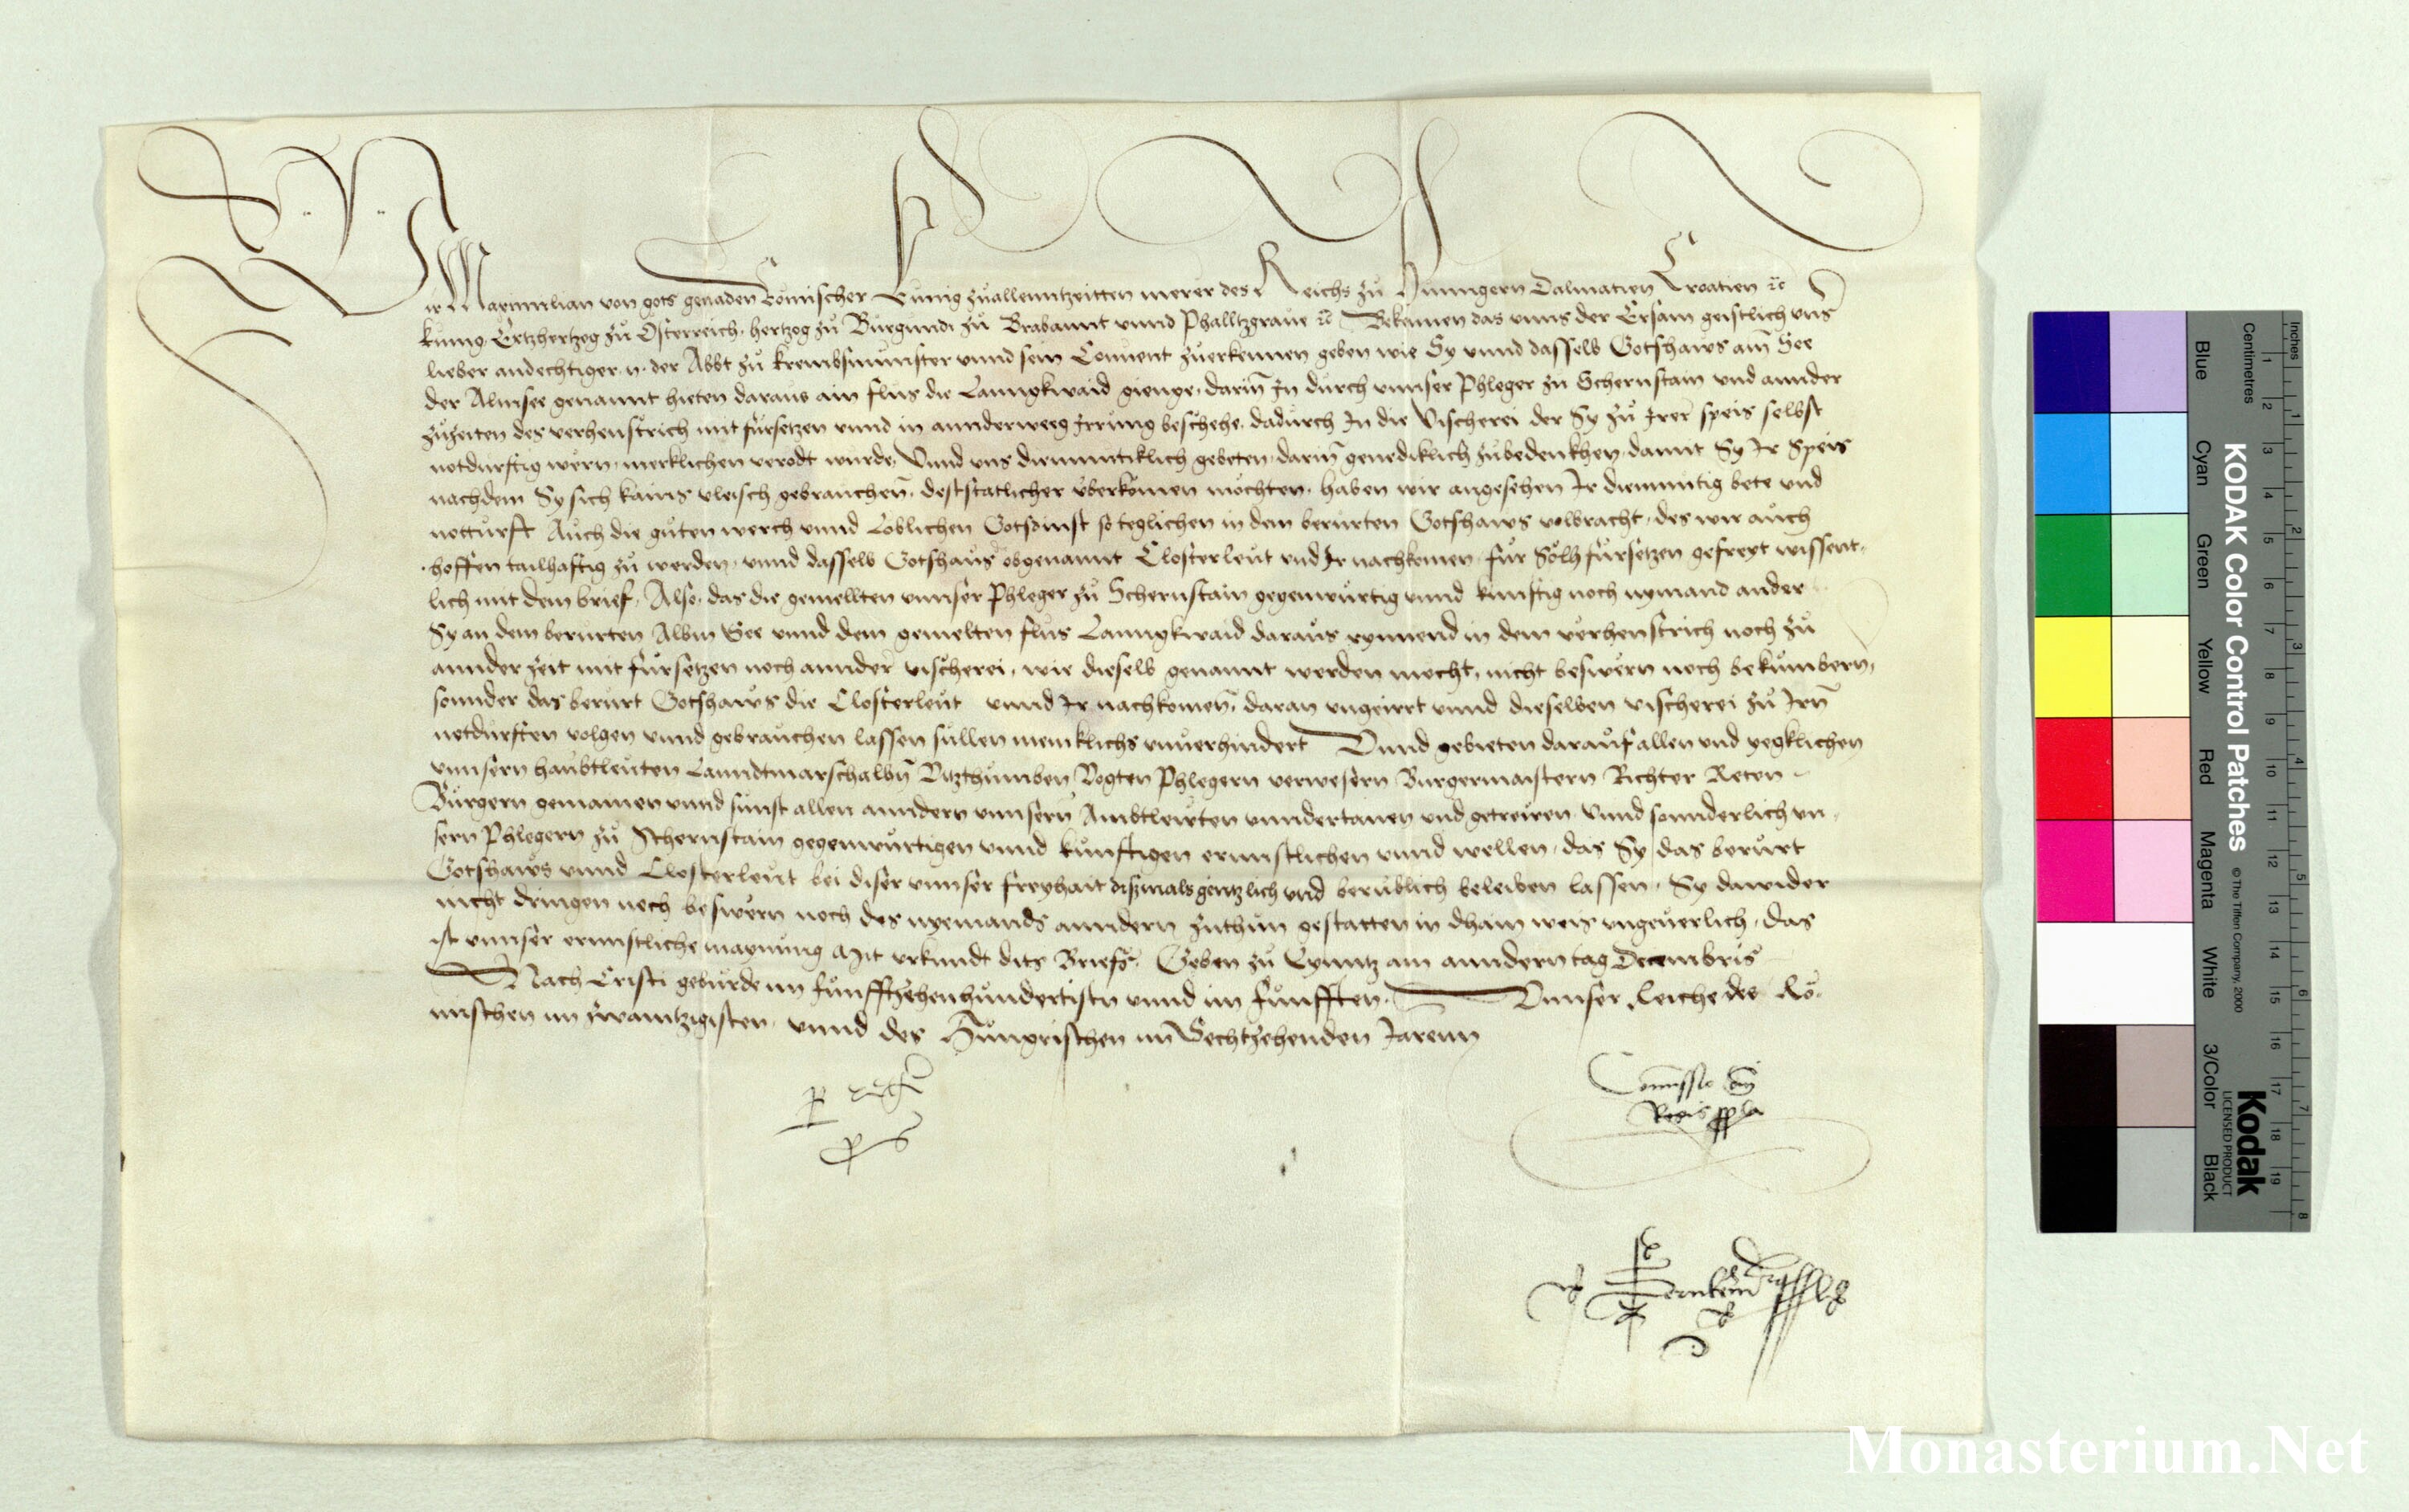 Wir Maximilian von gots genaden Römischer Kunig zuallenntzeitten merer des Reichs zu Hunngern Dalmatien Croatien etc
kunig Ertzhertzog zů Osterreich, hertzog zů Burgundi zů Brabannt vnnd Phalltzgraue etc Bekennen das vnns der Ersam geistlich vns
lieber andechtiger .n. der Abbt zů krembsmunster vnnd sein Conuent zuerkennen geben wie Sy vnnd dasselb Gotshaws am See
der Almsee genannt hieten daraus ain flus die Lanngkwaid gienge, darin In durch vnnser Phleger zu Schernstain vnd annder
zůzeiten des verhenstrich mit fürsetzen vnnd in annderweeg Irrung beschehe, dadurch In die Vischerei der Sy zů Irer speis selbst
notdurftig wern, merklichen verodt wurde, Vnnd vns diemuttiklich gebeten, darin genediklich zůbedenkhen, damit Sy Ir Speis
nachdem Sy sich kains vleisch gebrauchen, deststatlicher vberkomen möchten, haben wir angesehen Ir diemuttig bete vnd
notturft Auch die gůten werch vnnd Loblichen Gotsdinst so teglichen in dem berurten Gotshaws volbracht, des wir auch
hoffen tailhaftig zů werden, vnnd dasselb Gotshaus obgenannt Closterleut vnd Ir nachkomen für Solh fürsetzen gefreyt wissent-
lich mit dem brief, Also, das die gemellten vnnser Phleger zů Schernstain gegenwurtig vnnd kunftig noch nymand ander
Sy an dem berurten Albm See vnnd dem gemelten flus Lanngkwaid daraus rynnend in dem verhenstrich noch zů
annder zeit mit fürsetzen noch annder vischerei, wie dieselb genannt werden mocht, nicht beswern noch bekumbern,
sonnder das berurt Gotshaws die Closterleut vnnd Ir nachkomen, daran vngeirrt vnnd dieselben vischerei zů Irn
notdurften volgen vnnd gebrauchen lassen sullen meniklichs vnuerhindert Vnnd gebieten darauf allen vnd yegklichen
vnnsern haubtleuten Lanndtmarschalhn Vitzthumben Vogten Phlegern verwesern Burgermaistern Richter Reten
Burgern gemainen vnnd sunst allen anndern vnnsern Ambtleuten vnndertanen vnd getreuen Vnnd sonnderlich vn-
sern Phlegern zů Schernstain gegenwurtigen vnnd kunftigen ernnstlichen vnnd wellen, das Sy das berurt
Gotshaws vnnd Closterleut bei diser vnnser freyhait diszmals gentzlich vnd berublich beleiben lassen, Sy dawider
nicht dringen noch beswern noch des nyemands anndern zuthun gestatten in dhain weis vngeuerlich, Das
ist vnnser ernnstliche maynung Mit vrkundt dits Briefs, Geben zů Lynntz am anndern tag Decembris
Nach Cristi geburde im funfftzehenhundertistn vnnd im funfften, Vnnser Reiche des Rö-
mischen im zwaintzigisten, vnnd des Hungrischen im Sechtzehenden Jarenn
p regem
p s
Commissio domini
Regis ppria
Inches
Centimetres
Blue
Cyan
Green
Yellow
Red
Magenta
White
3/Color
Black
KODAK Color Control Patches
© The Tiffen Company, 2000
Kodak
LICENSED PRODUCT
1 2 3 4 5 6 7 8 9 10 11 12 13 14 15 16 17 18 19
1 2 3 4 5 6 7 8
Monasterium.Net